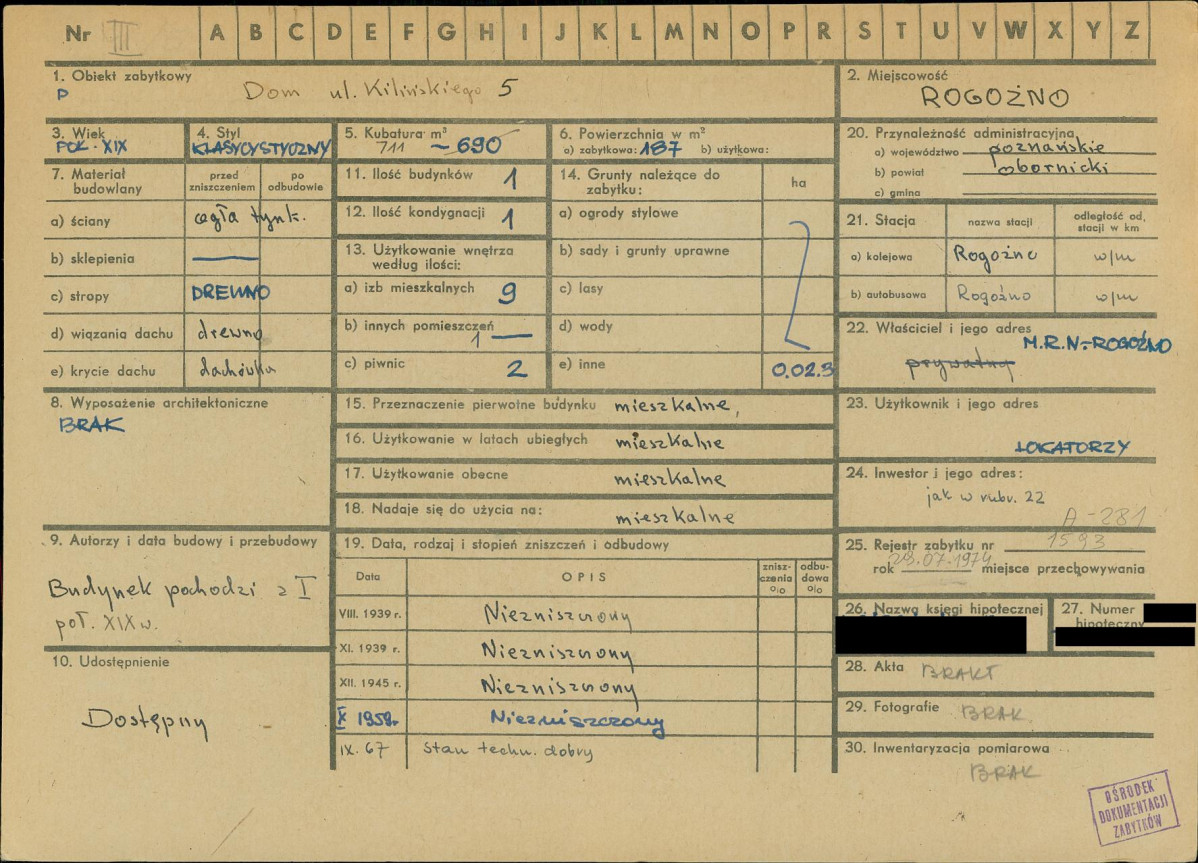 Nr III A B C D E F G H I J K L M N O P R S T U V W X Y Z
1. Obiekt zabytkowy
P
Dom ul. Kilińskiego 5
2. Miejscowość
ROGOŹNO
3. Wiek
POŁ. XIX
4. Styl
KLASYCYSTYCZNY
5. Kubatura m³
711 ~690
6. Powierzchnia w m²
a) zabytkowa: 187 b) użytkowa:
7. Materiał budowlany
przed zniszczeniem
po odbudowie
a) ściany cegła tynk.
b) sklepienia —
c) stropy DREWNO
d) wiązania dachu drewno
e) krycie dachu dachówka
8. Wyposażenie architektoniczne
BRAK
9. Autorzy i data budowy i przebudowy
Budynek pochodzi z I
poł. XIX w.
10. Udostępnienie
Dostępny
11. Ilość budynków 1
12. Ilość kondygnacji 1
13. Użytkowanie wnętrza
według ilości:
a) izb mieszkalnych 9
b) innych pomieszczeń
1 —
c) piwnic 2
14. Grunty należące do
zabytku:
ha
a) ogrody stylowe
b) sady i grunty uprawne
c) lasy
d) wody
e) inne 0.02.3
15. Przeznaczenie pierwotne budynku mieszkalne,
16. Użytkowanie w latach ubiegłych mieszkalne
17. Użytkowanie obecne mieszkalne
18. Nadaje się do użycia na: mieszkalne
19. Data, rodzaj i stopień zniszczeń i odbudowy
Data
OPIS
znisz-
czenia
%
odbu-
dowa
%
VIII. 1939 r. Niezniszczony
XI. 1939 r. Niezniszczony
XII. 1945 r. Niezniszczony
X 1959r. Niezniszczony
IX. 67 Stan techn. dobry
20. Przynależność administracyjna
a) województwo poznańskie
b) powiat obornicki
c) gmina
21. Stacja
nazwa stacji
odległość od,
stacji w km
a) kolejowa Rogoźno w/m
b) autobusowa Rogoźno w/m
22. Właściciel i jego adres
M.R.N.-ROGOŹNO
prywatny
23. Użytkownik i jego adres
LOKATORZY
24. Inwestor i jego adres:
jak w rubr. 22
A-281
25. Rejestr zabytku nr 1593
rok 29.07.1974 miejsce przechowywania
26. Nazwa księgi hipotecznej
27. Numer
hipoteczny
28. Akta BRAKT
29. Fotografie BRAK
30. Inwentaryzacja pomiarowa
BRAK
OŚRODEK
DOKUMENTACJI
ZABYTKÓW